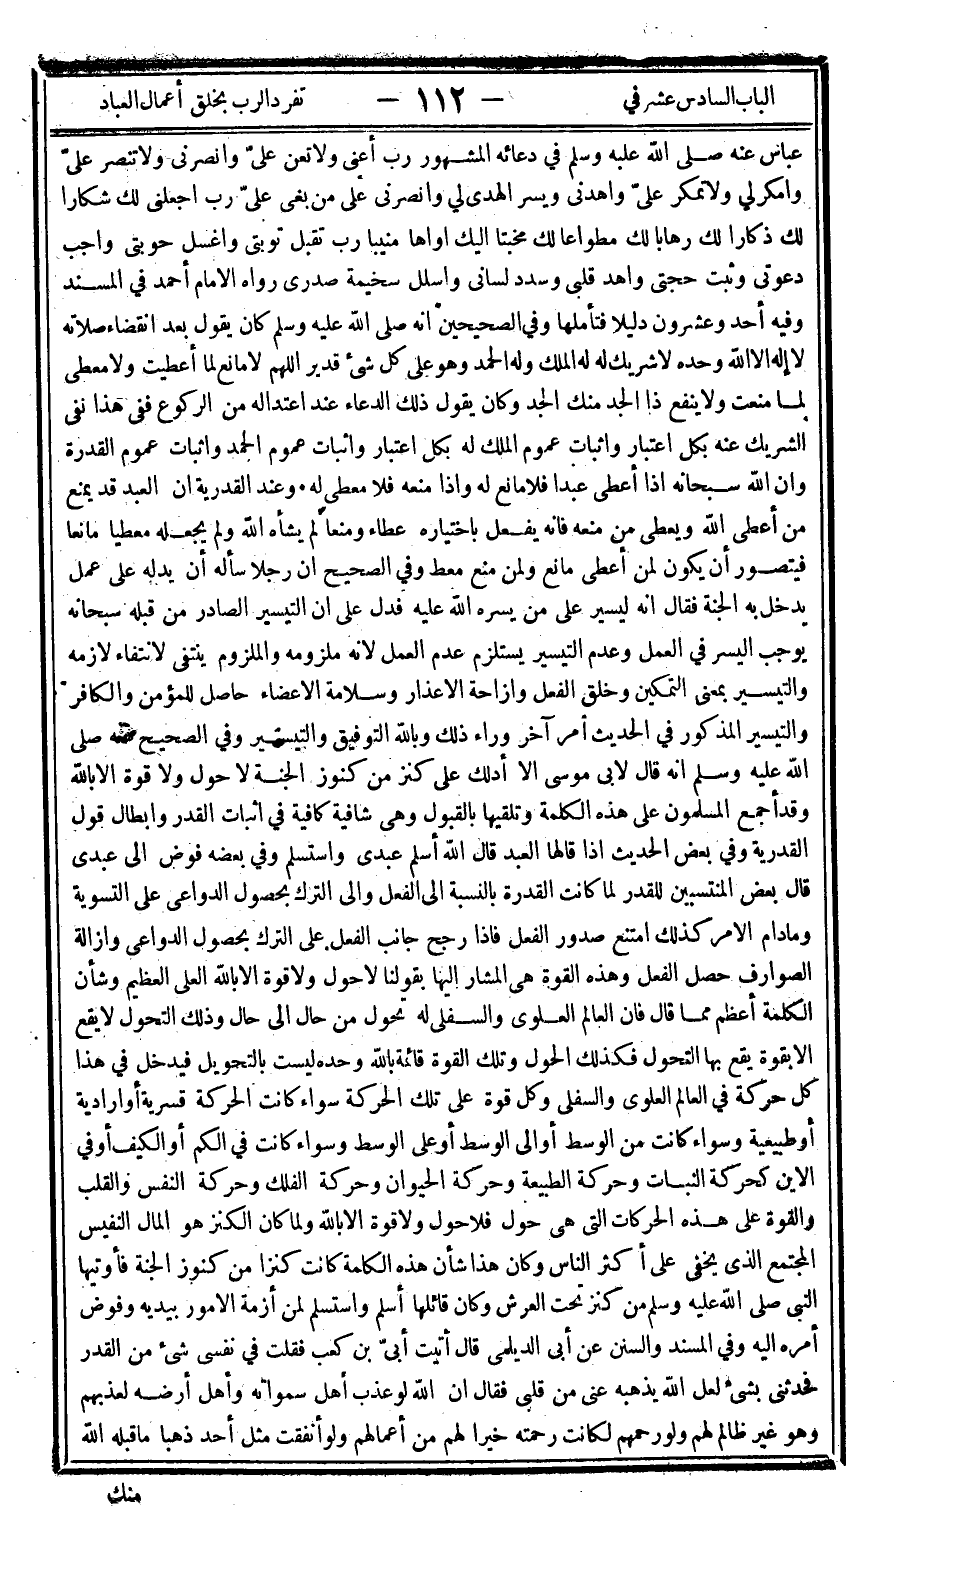 الباب السادس عشر في
- ١١٢ -
تفرد الرب بخلق أعمال العباد
عباس عنه صلى الله عليه وسلم في دعائه المشهور رب أعنى ولاتعن علىّ وانصرنى ولاتنصر علىّ
وامكرلي ولاتمكر علىّ واهدنى ويسر الهدى لي وانصرنى على من بغى علىّ رب اجعلنى لك شكارا
لك ذكارا لك رهابا لك مطواعا لك مخبتا اليك اواها منيبا رب تقبل توبتى واغسل حوبتى واجب
دعوتى وثبت حجتى واهد قلبى وسدد لسانى واسلل سخيمة صدرى رواه الامام أحمد في المسند
وفيه أحد وعشرون دليلا فتأملها وفي الصحيحين انه صلى الله عليه وسلم كان يقول بعد انقضاء صلاته
لا إله الا الله وحده لاشريك له له الملك وله الحمد وهو على كل شئ قدير اللهم لامانع لما أعطيت ولامعطى
لما منعت ولاينفع ذا الجد منك الجد وكان يقول ذلك الدعاء عند اعتداله من الركوع ففى هذا نفى
الشريك عنه بكل اعتبار واثبات عموم الملك له بكل اعتبار واثبات عموم الحمد واثبات عموم القدرة
وان الله سبحانه اذا أعطى عبدا فلامانع له واذا منعه فلا معطى له. وعند القدرية ان العبد قد يمنع
من أعطى الله ويعطى من منعه فانه يفعل باختياره عطاء ومنعا لم يشأه الله ولم يجعله معطيا مانعا
فيتصور أن يكون لمن أعطى مانع ولمن منع معط وفي الصحيح ان رجلا سأله أن يدله على عمل
يدخل به الجنة فقال انه ليسير على من يسره الله عليه فدل على ان التيسير الصادر من قبله سبحانه
يوجب اليسر في العمل وعدم التيسير يستلزم عدم العمل لانه ملزومه والملزوم ينتفى لانتفاء لازمه
والتيسير بمعنى التمكين وخلق الفعل وازاحة الاعذار وسلامة الاعضاء حاصل للمؤمن والكافر
والتيسير المذكور في الحديث أمر آخر وراء ذلك وبالله التوفيق والتيسير وفي الصحيح عنه صلى
الله عليه وسلم انه قال لابى موسى الا أدلك على كنز من كنوز الجنة لا حول ولا قوة الا بالله
وقد أجمع المسلمون على هذه الكلمة وتلقيها بالقبول وهى شافية كافية في اثبات القدر وابطال قول
القدرية وفي بعض الحديث اذا قالها العبد قال الله أسلم عبدى واستسلم وفي بعضه فوض الى عبدى
قال بعض المنتسبين للقدر لما كانت القدرة بالنسبة الى الفعل والى الترك بحصول الدواعى على التسوية
ومادام الامر كذلك امتنع صدور الفعل فاذا رجح جانب الفعل على الترك بحصول الدواعى وازالة
الصوارف حصل الفعل وهذه القوة هى المشار اليها بقولنا لاحول ولاقوة الا بالله العلى العظيم وشأن
الكلمة أعظم مما قال فان العالم العلوى والسفلى له تحول من حال الى حال وذلك التحول لايقع
الابقوة يقع بها التحول فكذلك الحول وتلك القوة قائمة بالله وحده ليست بالتحويل فيدخل في هذا
كل حركة في العالم العلوى والسفلى وكل قوة على تلك الحركة سواء كانت الحركة قسرية أوارادية
أوطبيعية وسواء كانت من الوسط أوالى الوسط أوعلى الوسط وسواء كانت في الكم أوالكيف أوفي
الاين كحركة النبات وحركة الطبيعة وحركة الحيوان وحركة الفلك وحركة النفس والقلب
والقوة على هذه الحركات التى هى حول فلاحول ولاقوة الا بالله ولما كان الكنز هو المال النفيس
المجتمع الذى يخفى على أكثر الناس وكان هذا شأن هذه الكلمة كانت كنزا من كنوز الجنة فأوتيها
النبى صلى الله عليه وسلم من كنز تحت العرش وكان قائلها أسلم واستسلم لمن أزمة الامور بيديه وفوض
أمره اليه وفي المسند والسنن عن أبى الديلمى قال أتيت أبىّ بن كعب فقلت في نفسى شئ من القدر
فحدثنى بشئ لعل الله يذهبه عنى من قلبى فقال ان الله لوعذب أهل سمواته وأهل أرضه لعذبهم
وهو غير ظالم لهم ولو رحمهم لكانت رحمته خيرا لهم من أعمالهم ولو أنفقت مثل أحد ذهبا ماقبله الله
منك